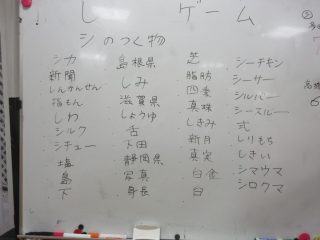 し ゲーム
シのつく物
シカ
新聞
しんかんせん
指もん
しわ
シルク
シチュー
塩
島
下
島根県
しみ
滋賀県
しょうゆ
舌
下田
静岡県
写真
身長
芝
脂肪
四季
真珠
しきみ
新月
真実
白
シーチキン
シーサー
シルバー
シースルー
式
しりもち
しきい
シマウマ
シロクマ